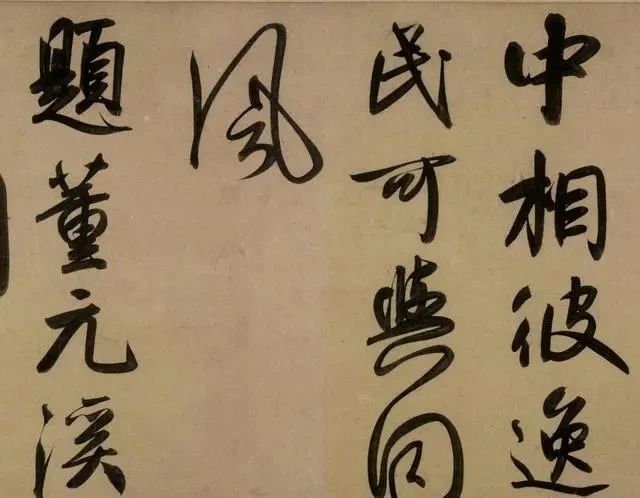 中相彼逸
民可與同
風
題董元溪